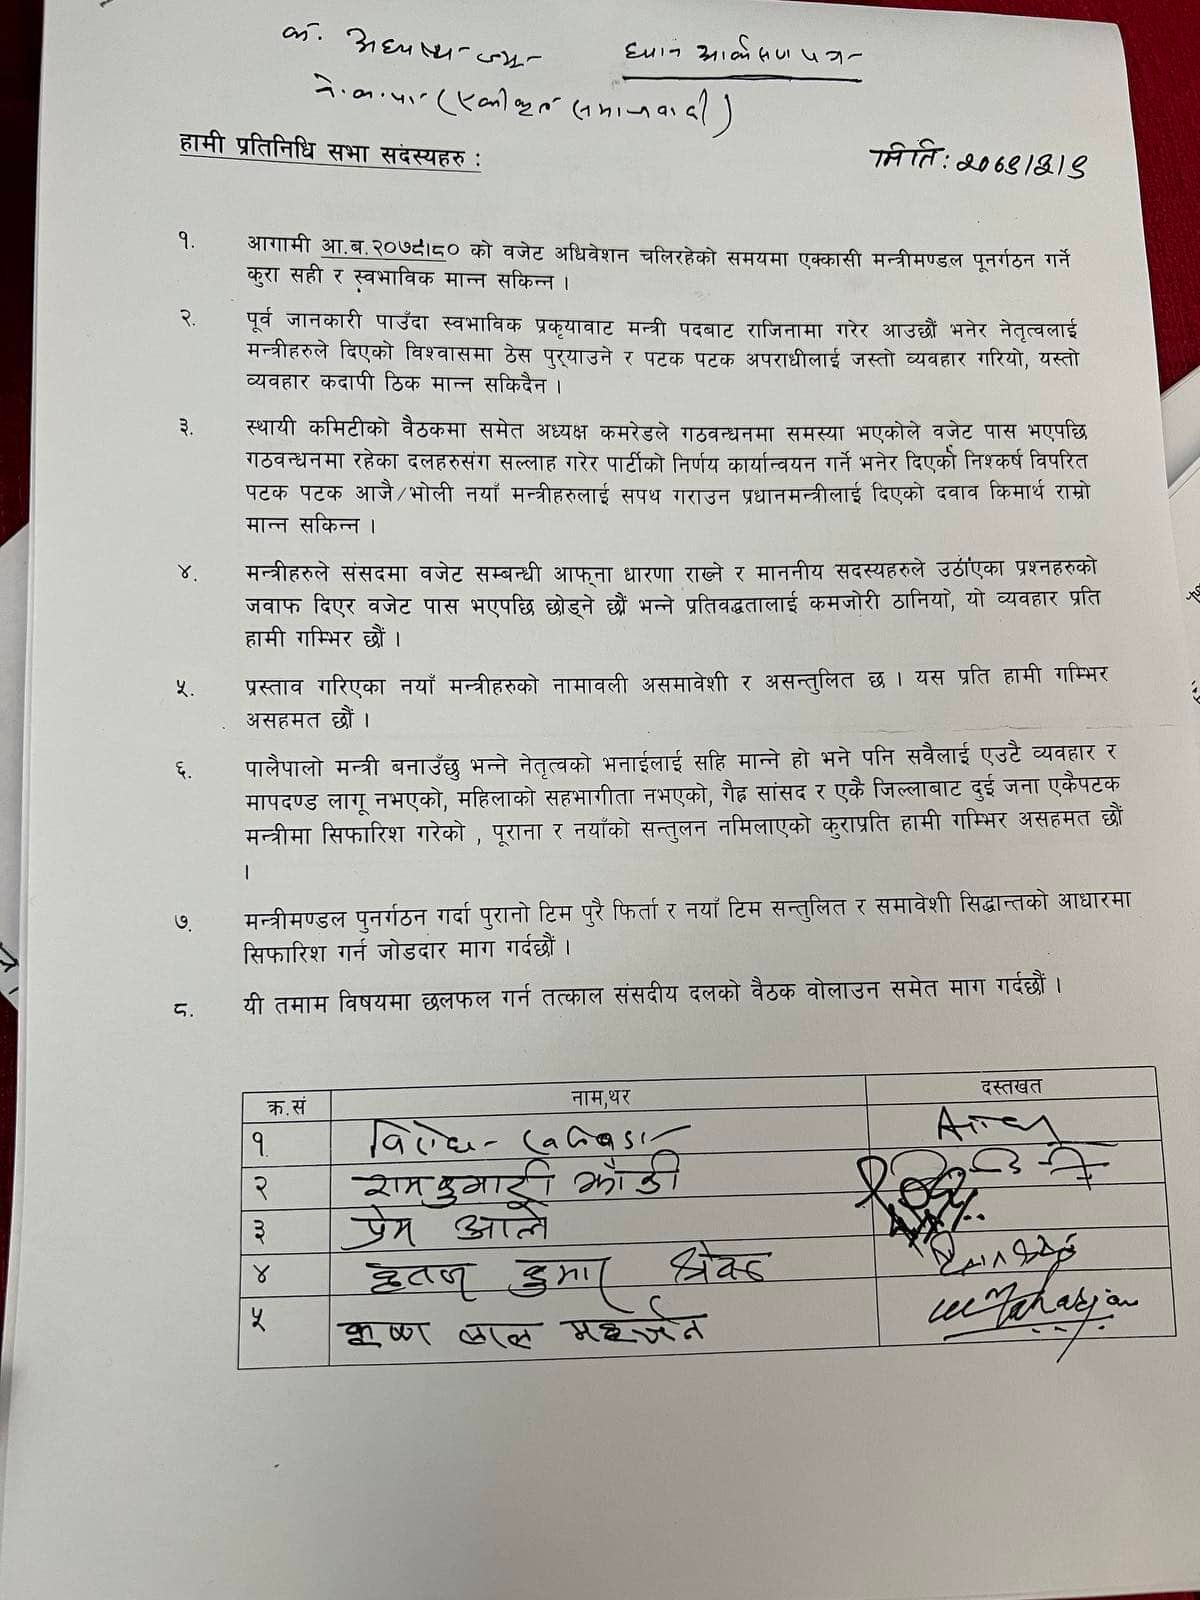 क. अध्यक्ष ज्यू- ध्यान आर्कसण पत्र-
ने.क.पा. (एकीकृत समाजवादी)
हामी प्रतिनिधि सभा सदस्यहरु : मिति: २०७९/३/९
१. आगामी आ.ब.२०७९।८० को वजेट अधिवेशन चलिरहेको समयमा एक्कासी मन्त्रीमण्डल पूनर्गठन गर्ने
कुरा सही र स्वभाविक मान्न सकिन्न ।
२. पूर्व जानकारी पाउँदा स्वभाविक प्रकृयावाट मन्त्री पदबाट राजिनामा गरेर आउछौं भनेर नेतृत्वलाई
मन्त्रीहरुले दिएको विश्वासमा ठेस पुर्‍याउने र पटक पटक अपराधीलाई जस्तो व्यवहार गरियो, यस्तो
व्यवहार कदापी ठिक मान्न सकिदैन ।
३. स्थायी कमिटीको वैठकमा समेत अध्यक्ष कमरेडले गठवन्धनमा समस्या भएकोले वजेट पास भएपछि
गठवन्धनमा रहेका दलहरुसंग सल्लाह गरेर पार्टीको निर्णय कार्यान्वयन गर्ने भनेर दिएको निश्कर्ष विपरित
पटक पटक आजै/भोली नयाँ मन्त्रीहरुलाई सपथ गराउन प्रधानमन्त्रीलाई दिएको दवाव किमार्थ राम्रो
मान्न सकिन्न ।
४. मन्त्रीहरुले संसदमा वजेट सम्बन्धी आफ्ना धारणा राख्ने र माननीय सदस्यहरुले उठाँएका प्रश्नहरुको
जवाफ दिएर वजेट पास भएपछि छोड्ने छौं भन्ने प्रतिवद्धतालाई कमजोरी ठानियो, यो व्यवहार प्रति
हामी गम्भिर छौं ।
५. प्रस्ताव गरिएका नयाँ मन्त्रीहरुको नामावली असमावेशी र असन्तुलित छ । यस प्रति हामी गम्भिर
असहमत छौं ।
६. पालैपालो मन्त्री बनाउँछु भन्ने नेतृत्वको भनाईलाई सहि मान्ने हो भने पनि सवैलाई एउटै व्यवहार र
मापदण्ड लागू नभएको, महिलाको सहभागीता नभएको, गैह्र सांसद र एकै जिल्लाबाट दुई जना एकैपटक
मन्त्रीमा सिफारिश गरेको , पूराना र नयाँको सन्तुलन नमिलाएको कुराप्रति हामी गम्भिर असहमत छौं
।
७. मन्त्रीमण्डल पुनर्गठन गर्दा पुरानो टिम पुरै फिर्ता र नयाँ टिम सन्तुलित र समावेशी सिद्धान्तको आधारमा
सिफारिश गर्न जोडदार माग गर्दछौं ।
८. यी तमाम विषयमा छलफल गर्न तत्काल संसदीय दलको वैठक वोलाउन समेत माग गर्दछौं ।
क्र.सं नाम,थर दस्तखत
१ विरोध खतिवडा
२ रामकुमारी झाँक्री
३ प्रेम आले
४ कुमार श्रेष्ठ
५ कृष्ण लाल महर्जन Maharjan